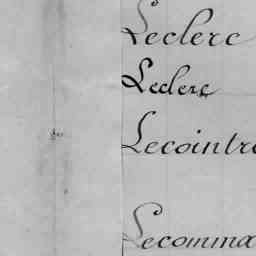 Leclerc
Leclerc
Lecointre
Lecomma